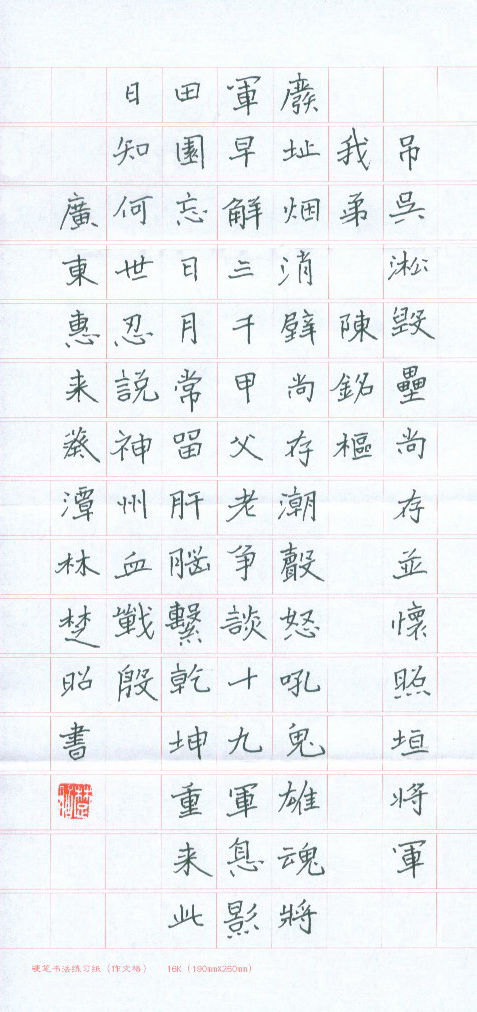 吊吳淞毀壘尚存並懷照垣將軍
我弟陳銘樞
廢址烟消壁尚存潮聲怒吼鬼雄魂將
軍早解三千甲父老爭談十九軍息影
田園忘日月常留肝腦繫乾坤重来此
日知何世忍説神州血戰殷
廣東惠来蔡潭林楚昭書
硬笔书法练习纸（作文稿） 16K（190mmX260mm）